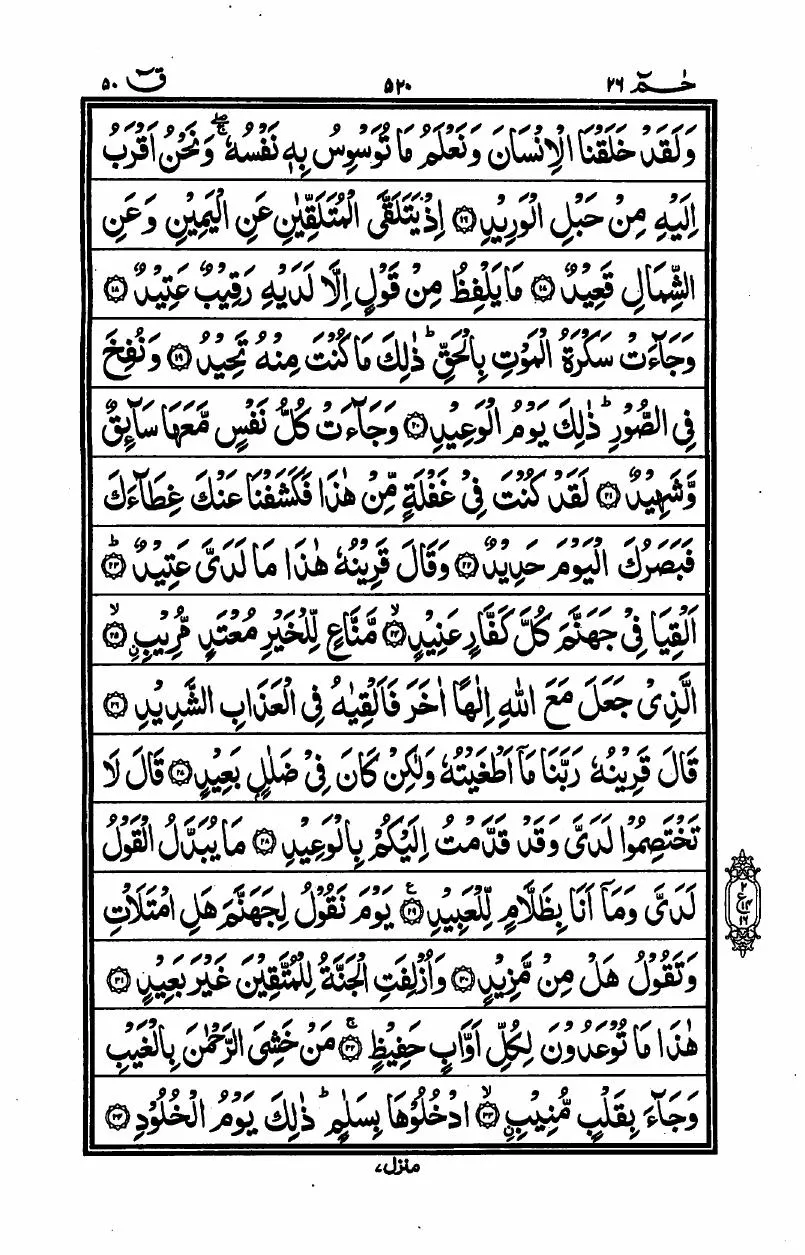 حٰمٓ ۲۶ ۵۲۰ قٓ ۵۰
وَلَقَدْ خَلَقْنَا الْاِنْسَانَ وَنَعْلَمُ مَا تُوَسْوِسُ بِهٖ نَفْسُهٗ ۚۖ وَنَحْنُ اَقْرَبُ
اِلَيْهِ مِنْ حَبْلِ الْوَرِيْدِ ﴿۱۶﴾ اِذْ يَتَلَقَّى الْمُتَلَقِّيٰنِ عَنِ الْيَمِيْنِ وَعَنِ
الشِّمَالِ قَعِيْدٌ ﴿۱۷﴾ مَا يَلْفِظُ مِنْ قَوْلٍ اِلَّا لَدَيْهِ رَقِيْبٌ عَتِيْدٌ ﴿۱۸﴾
وَجَآءَتْ سَكْرَةُ الْمَوْتِ بِالْحَقِّ ؕ ذٰلِكَ مَا كُنْتَ مِنْهُ تَحِيْدُ ﴿۱۹﴾ وَنُفِخَ
فِى الصُّوْرِ ؕ ذٰلِكَ يَوْمُ الْوَعِيْدِ ﴿۲۰﴾ وَجَآءَتْ كُلُّ نَفْسٍ مَّعَهَا سَآئِقٌ
وَّشَهِيْدٌ ﴿۲۱﴾ لَقَدْ كُنْتَ فِىْ غَفْلَةٍ مِّنْ هٰذَا فَكَشَفْنَا عَنْكَ غِطَآءَكَ
فَبَصَرُكَ الْيَوْمَ حَدِيْدٌ ﴿۲۲﴾ وَقَالَ قَرِيْنُهٗ هٰذَا مَا لَدَىَّ عَتِيْدٌ ؕ ﴿۲۳﴾
اَلْقِيَا فِىْ جَهَنَّمَ كُلَّ كَفَّارٍ عَنِيْدٍ ۙ ﴿۲۴﴾ مَّنَّاعٍ لِّلْخَيْرِ مُعْتَدٍ مُّرِيْبٍ ۙ ﴿۲۵﴾
الَّذِىْ جَعَلَ مَعَ اللّٰهِ اِلٰهًا اٰخَرَ فَاَلْقِيٰهُ فِى الْعَذَابِ الشَّدِيْدِ ﴿۲۶﴾
قَالَ قَرِيْنُهٗ رَبَّنَا مَآ اَطْغَيْتُهٗ وَلٰكِنْ كَانَ فِىْ ضَلٰلٍۭ بَعِيْدٍ ﴿۲۷﴾ قَالَ لَا
تَخْتَصِمُوْا لَدَىَّ وَقَدْ قَدَّمْتُ اِلَيْكُمْ بِالْوَعِيْدِ ﴿۲۸﴾ مَا يُبَدَّلُ الْقَوْلُ
لَدَىَّ وَمَآ اَنَا بِظَلَّامٍ لِّلْعَبِيْدِ ﴿۲۹﴾ ع يَوْمَ نَقُوْلُ لِجَهَنَّمَ هَلِ امْتَلَاْتِ
وَتَقُوْلُ هَلْ مِنْ مَّزِيْدٍ ﴿۳۰﴾ وَاُزْلِفَتِ الْجَنَّةُ لِلْمُتَّقِيْنَ غَيْرَ بَعِيْدٍ ﴿۳۱﴾
هٰذَا مَا تُوْعَدُوْنَ لِكُلِّ اَوَّابٍ حَفِيْظٍ ۚ ﴿۳۲﴾ مَنْ خَشِىَ الرَّحْمٰنَ بِالْغَيْبِ
وَجَآءَ بِقَلْبٍ مُّنِيْبِ ۙ ﴿۳۳﴾ ادْخُلُوْهَا بِسَلٰمٍ ؕ ذٰلِكَ يَوْمُ الْخُلُوْدِ ﴿۳۴﴾
۲
ع ۱۴
۱۶
منزل ۷